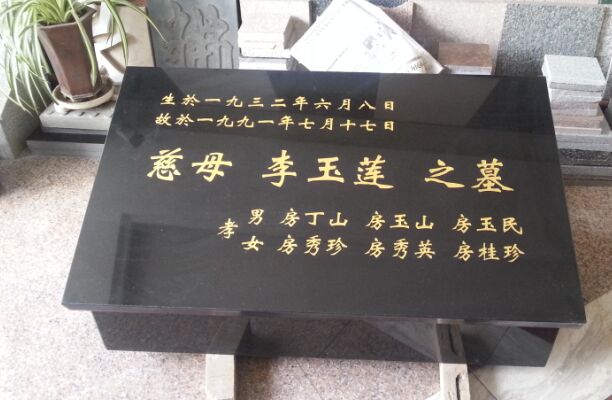 生於一九三二年六月八日
故於一九九一年七月十七日
慈母 李玉莲 之墓
孝
男 房丁山 房玉山 房玉民
女 房秀珍 房秀英 房桂珍